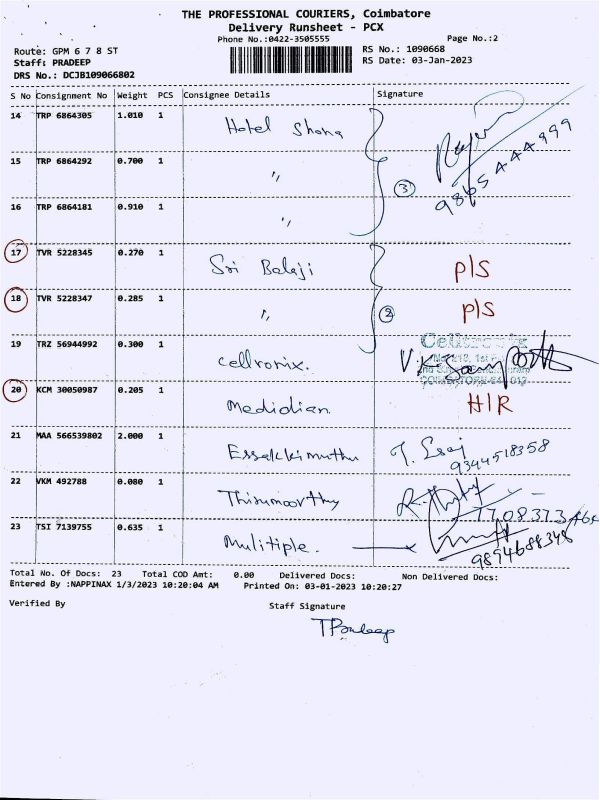 THE PROFESSIONAL COURIERS, Coimbatore
Delivery Runsheet - PCX
Phone No.:0422-3505555
Page No.:2
Route: GPM 6 7 8 ST
RS No.: 1090668
Staff: PRADEEP
RS Date: 03-Jan-2023
DRS No.: DCJB109066802
S No Consignment No Weight PCS Consignee Details Signature
14 TRP 6864305 1.010 1 Hotel Shona
15 TRP 6864292 0.700 1 "
9865444999
3
16 TRP 6864181 0.910 1 "
17 TVR 5228345 0.270 1 Sri Balaji P/S
18 TVR 5228347 0.285 1 " P/S
2
19 TRZ 56944992 0.300 1 cellronix.
Celltronix
20 KCM 30050987 0.205 1 Medidian H/R
21 MAA 566539802 2.000 1 Essakkimuthu
9344518358
22 VKM 492788 0.080 1 Thirumoorthy
23 TSI 7139755 0.635 1 Mulitiple.
9894688348
Total No. Of Docs: 23 Total COD Amt: 0.00 Delivered Docs: Non Delivered Docs:
Entered By :NAPPINAX 1/3/2023 10:20:04 AM Printed On: 03-01-2023 10:20:27
Verified By Staff Signature
TPradeep